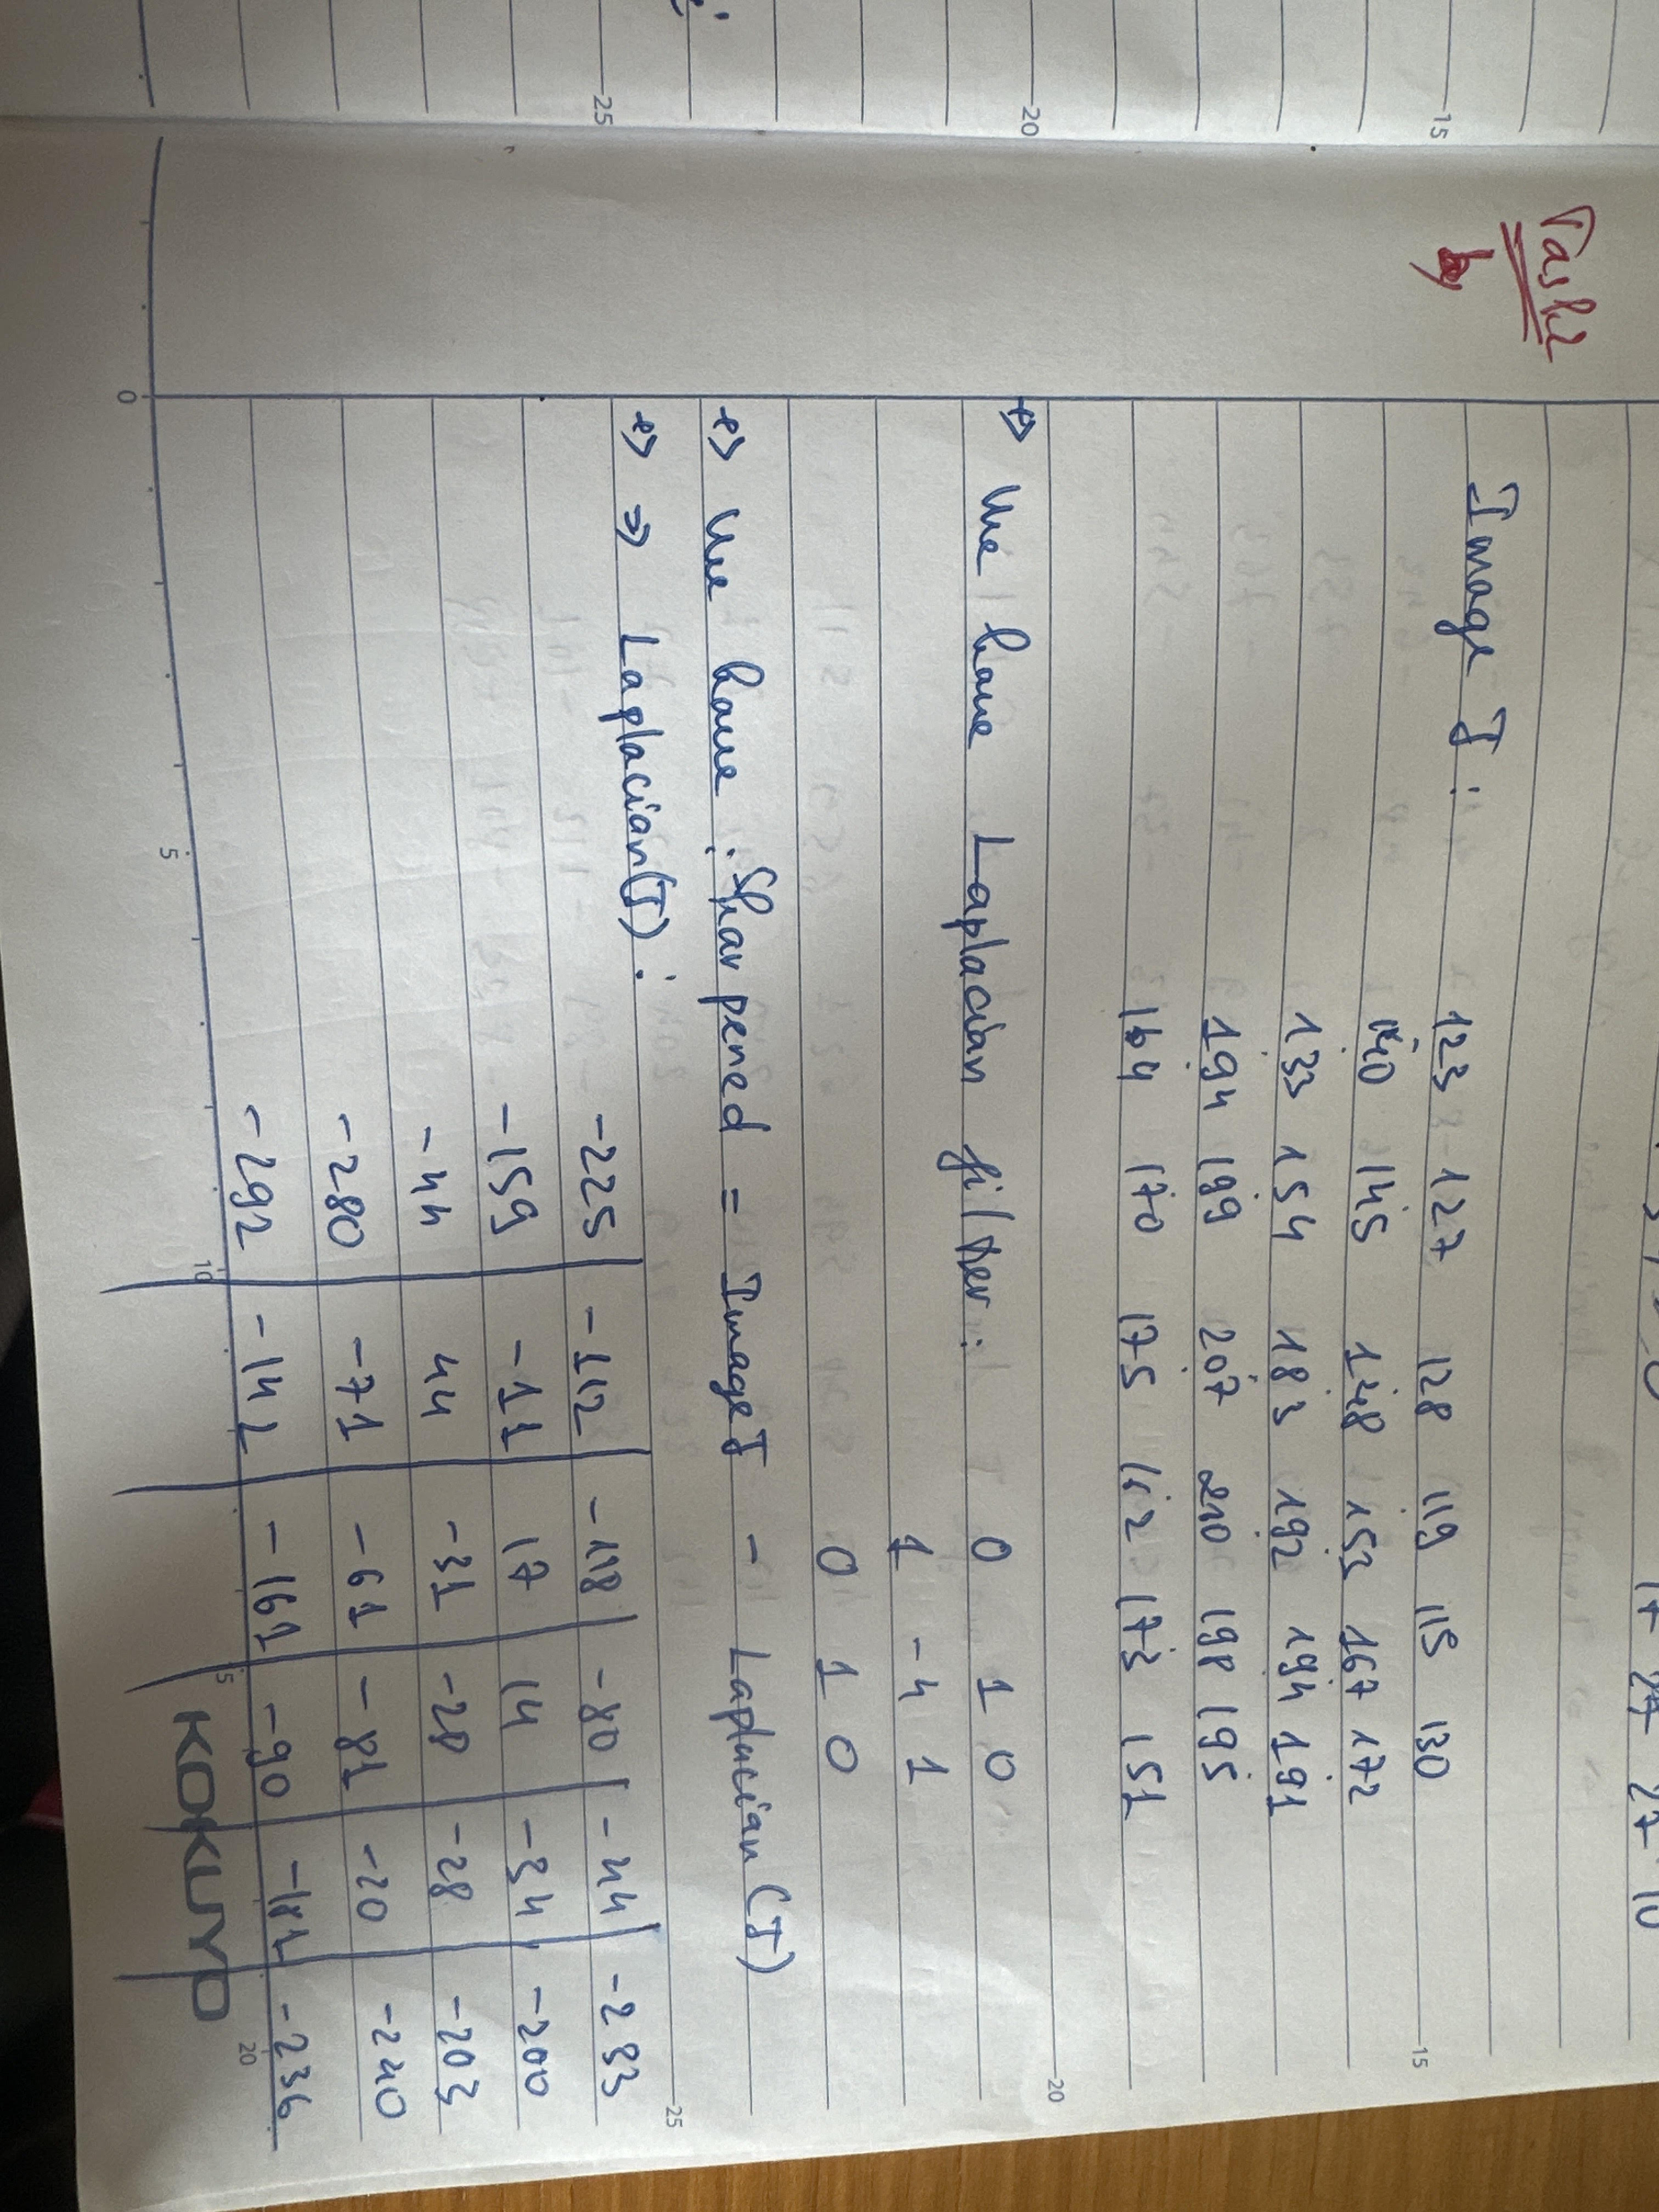 Task2
b,
Image I: 123 127 128 119 115 130
140 145 148 153 167 172
133 154 183 192 194 191
194 199 207 210 198 195
164 170 175 162 173 151
+) We have Laplacian filter: 0 1 0
1 -4 1
0 1 0
+) We have: Sharpened = Image I - Laplacian(I)
+) => Laplacian(I): -225 -112 -118 -80 -44 -233
-159 -11 17 14 -34 -200
-44 44 -31 -28 -28 -203
-280 -71 -61 -81 -20 -240
-292 -141 -161 -90 -181 -236
15
20
25
0
5
10
20
KOKUYO